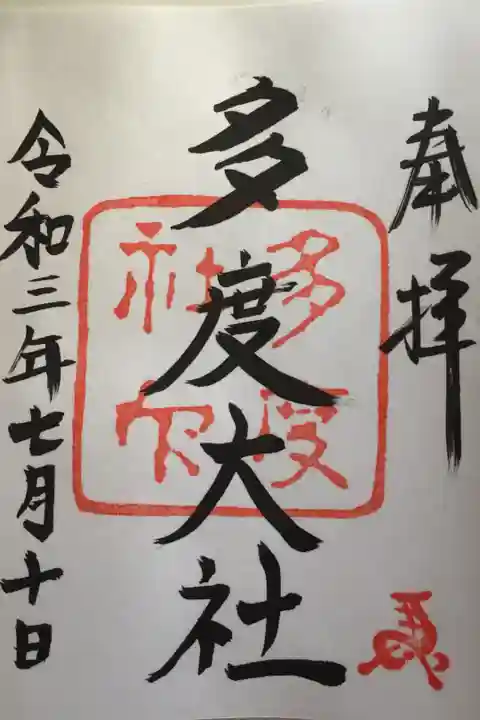 奉拝
多度大社
多度
社印
令和三年七月十日